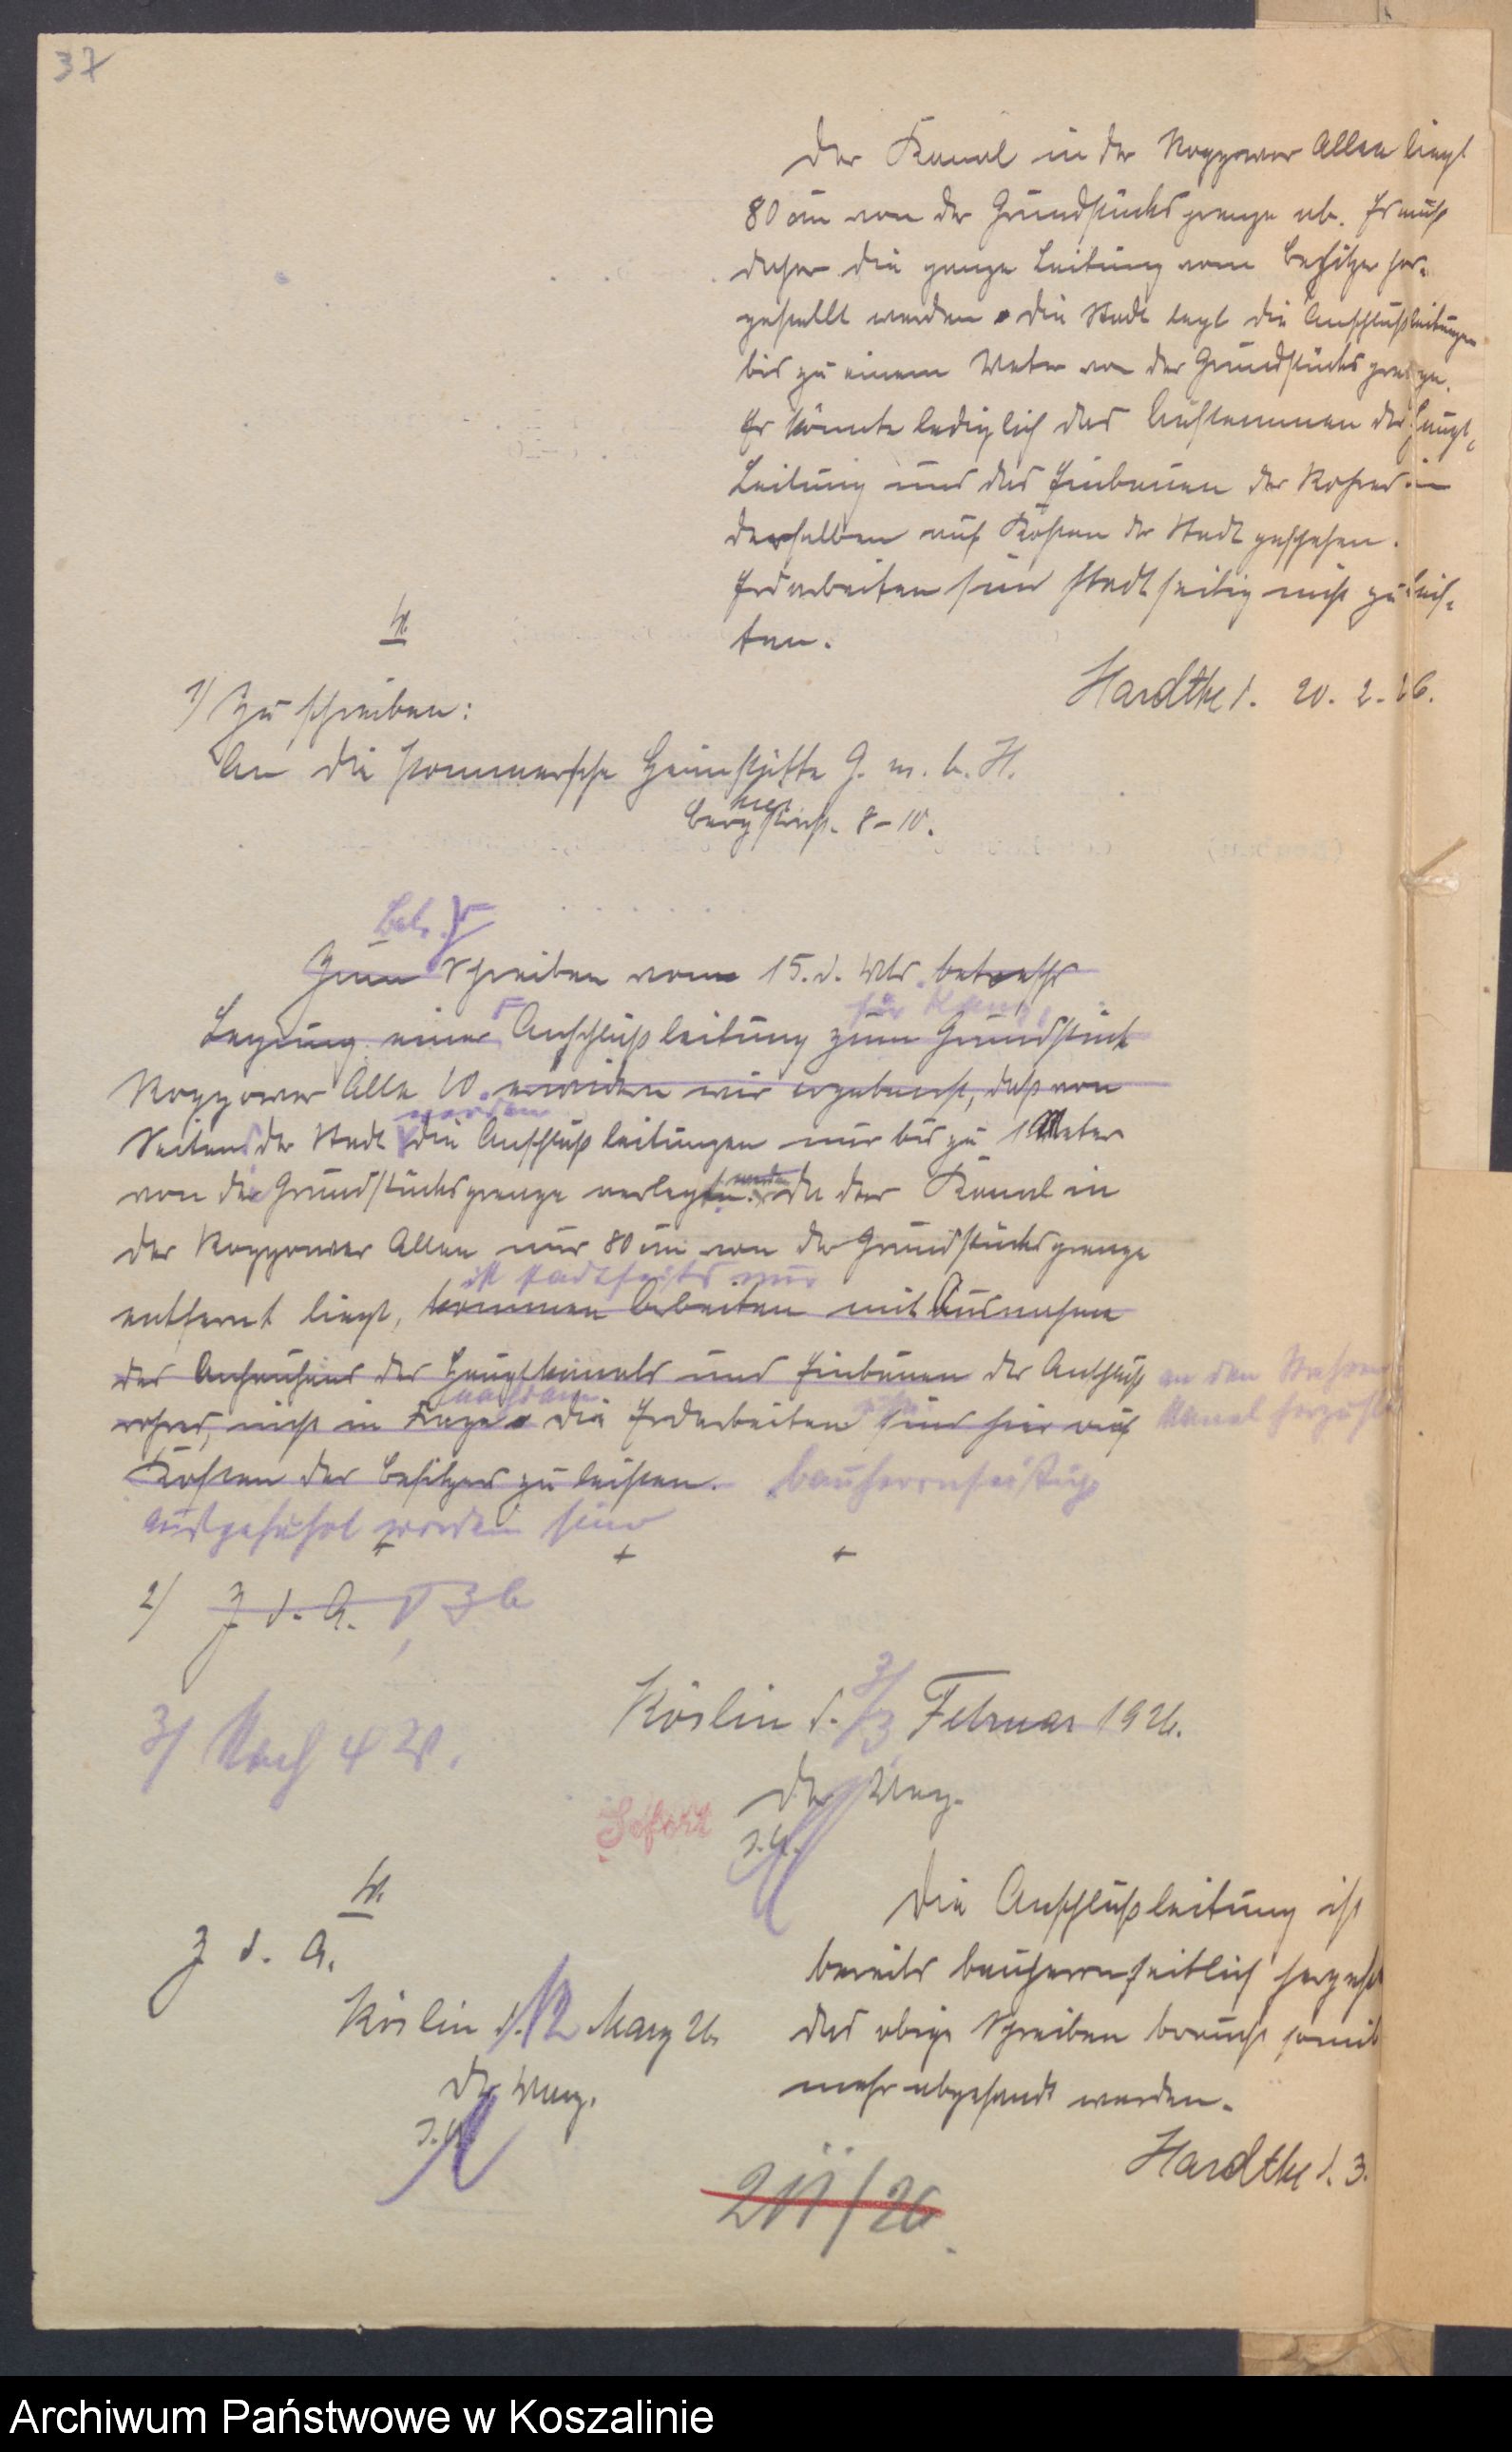 37
Der Kanal in der Roggower Allee liegt
80 cm von der Grundstücksgrenze ab. Es muß
daher die ganze Leitung vom Besitzer her-
gestellt werden. Die Stadt legt die Anschlußleitungen
bis zu einem Meter von der Grundstücksgrenze.
Es könnte lediglich das Aufstemmen der Haupt-
Leitung und das Einbauen des Rohres in
derselben auf Kosten der Stadt geschehen.
Erdarbeiten sind stadtseitig nicht zu leis-
ten.
Hardtke d. 20. 2. 26.
V.
1) Zu schreiben:
An die Pommersche Heimstätte G. m. b. H.
hier
Bergstraß. 8-10.
Betr.
Zum Schreiben vom 15. d. Mts. betreffs
Legung einer Anschlußleitung zum Grundstück
Roggower Allee 10. erwidern wir ergebenst, daß von
werden
Seiten der Stadt die Anschlußleitungen nur bis zu 1 Meter
von der Grundstücksgrenze verlegt werden. Da der Kanal in
der Roggower Allee nur 80 cm von der Grundstücksgrenze
ist stadtseits nur
entfernt liegt, kommen Arbeiten mit Ausnahme
des des Hauptkanals und Einbauen des Anschluß
an den
nachdem
rohres, nicht in Frage. Die Erdarbeiten sind hier auf
Kanal
Kosten des Besitzers zu leisten. bauherrnseitig
ausgeführt worden sind
2) Z. d. A.
3) Nach 4 W.
Köslin d. 3/3 Februar 1926.
Der Mag.
Sofort
J. A.
V.
Z. d. A.
Köslin d. 12 März 26
Der Mag.
J. A.
Die Anschlußleitung ist
bereits bauherrnseitlich hergest
das obige Schreiben braucht somit
mehr abgesandt werden.
Hardtke d. 3.
211/26
Archiwum Państwowe w Koszalinie